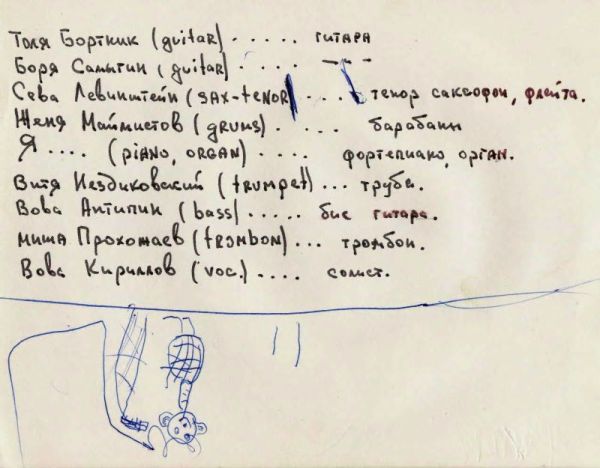 Толя Бортник (guitar) ..... гитара
Боря Самыгин (guitar) ..... — " —
Сева Левинштейн (sax-tenor) ... тенор саксофон, флейта.
Женя Маймистов (grums) .... барабаны
Я .... (piano, organ) .... фортепиано, орган.
Витя Нездиковский (trumpet) ... труба.
Вова Антипин (bass) ..... бас гитара.
Миша Прохожаев (trombon) ... тромбон.
Вова Кириллов (voc.) .... солист.